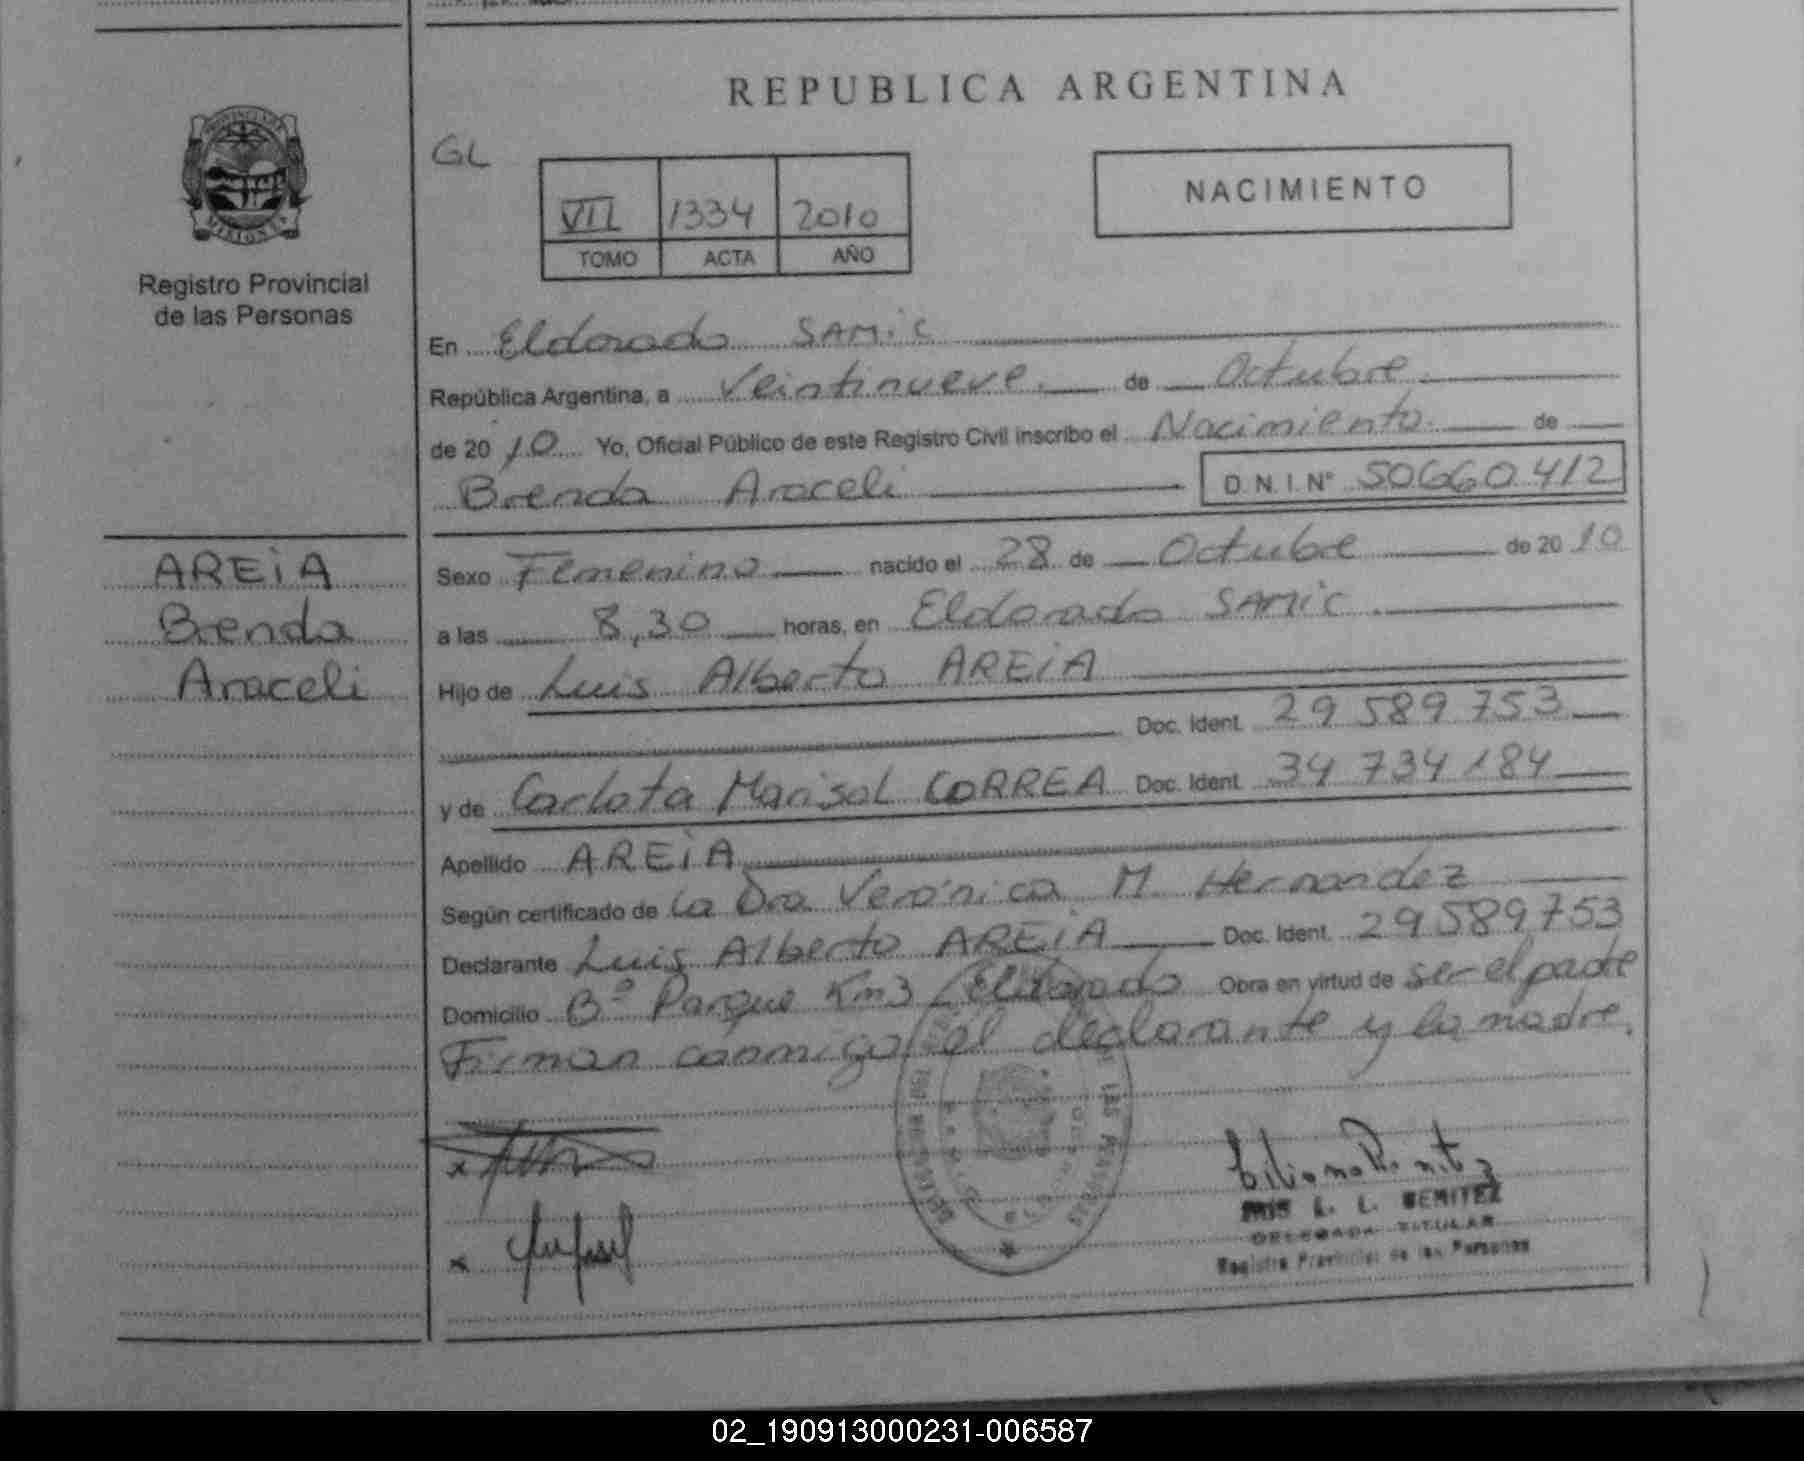 REPUBLICA ARGENTINA
GL
VII 1334 2010
TOMO ACTA AÑO
NACIMIENTO
PROVINCIA DE MISIONES
Registro Provincial
de las Personas
En Eldorado SAMiC
República Argentina, a Veintinueve. de Octubre
de 2010 Yo, Oficial Público de este Registro Civil inscribo el Nacimiento. de
Brenda Araceli D.N.I.Nº 50660412
AREiA
Brenda
Araceli
Sexo Femenino nacido el 28 de Octubre de 2010
a las 8,30 horas, en Eldorado SAMiC.
Hijo de Luis Alberto AREiA
Doc. Ident. 29 589 753
y de Carlota Marisol CORREA Doc. Ident. 34 734 184
Apellido AREiA
Según certificado de La Dra Verónica M Hernandez
Declarante Luis Alberto AREiA Doc. Ident. 29589753
Domicilio Bº Parque Km3 Eldorado Obra en virtud de ser el padre
Firman conmigo el declarante y la madre.
x
x
L. L. BENITEZ
DELEGADA TITULAR
Registro Provincial de las Personas
02_190913000231-006587